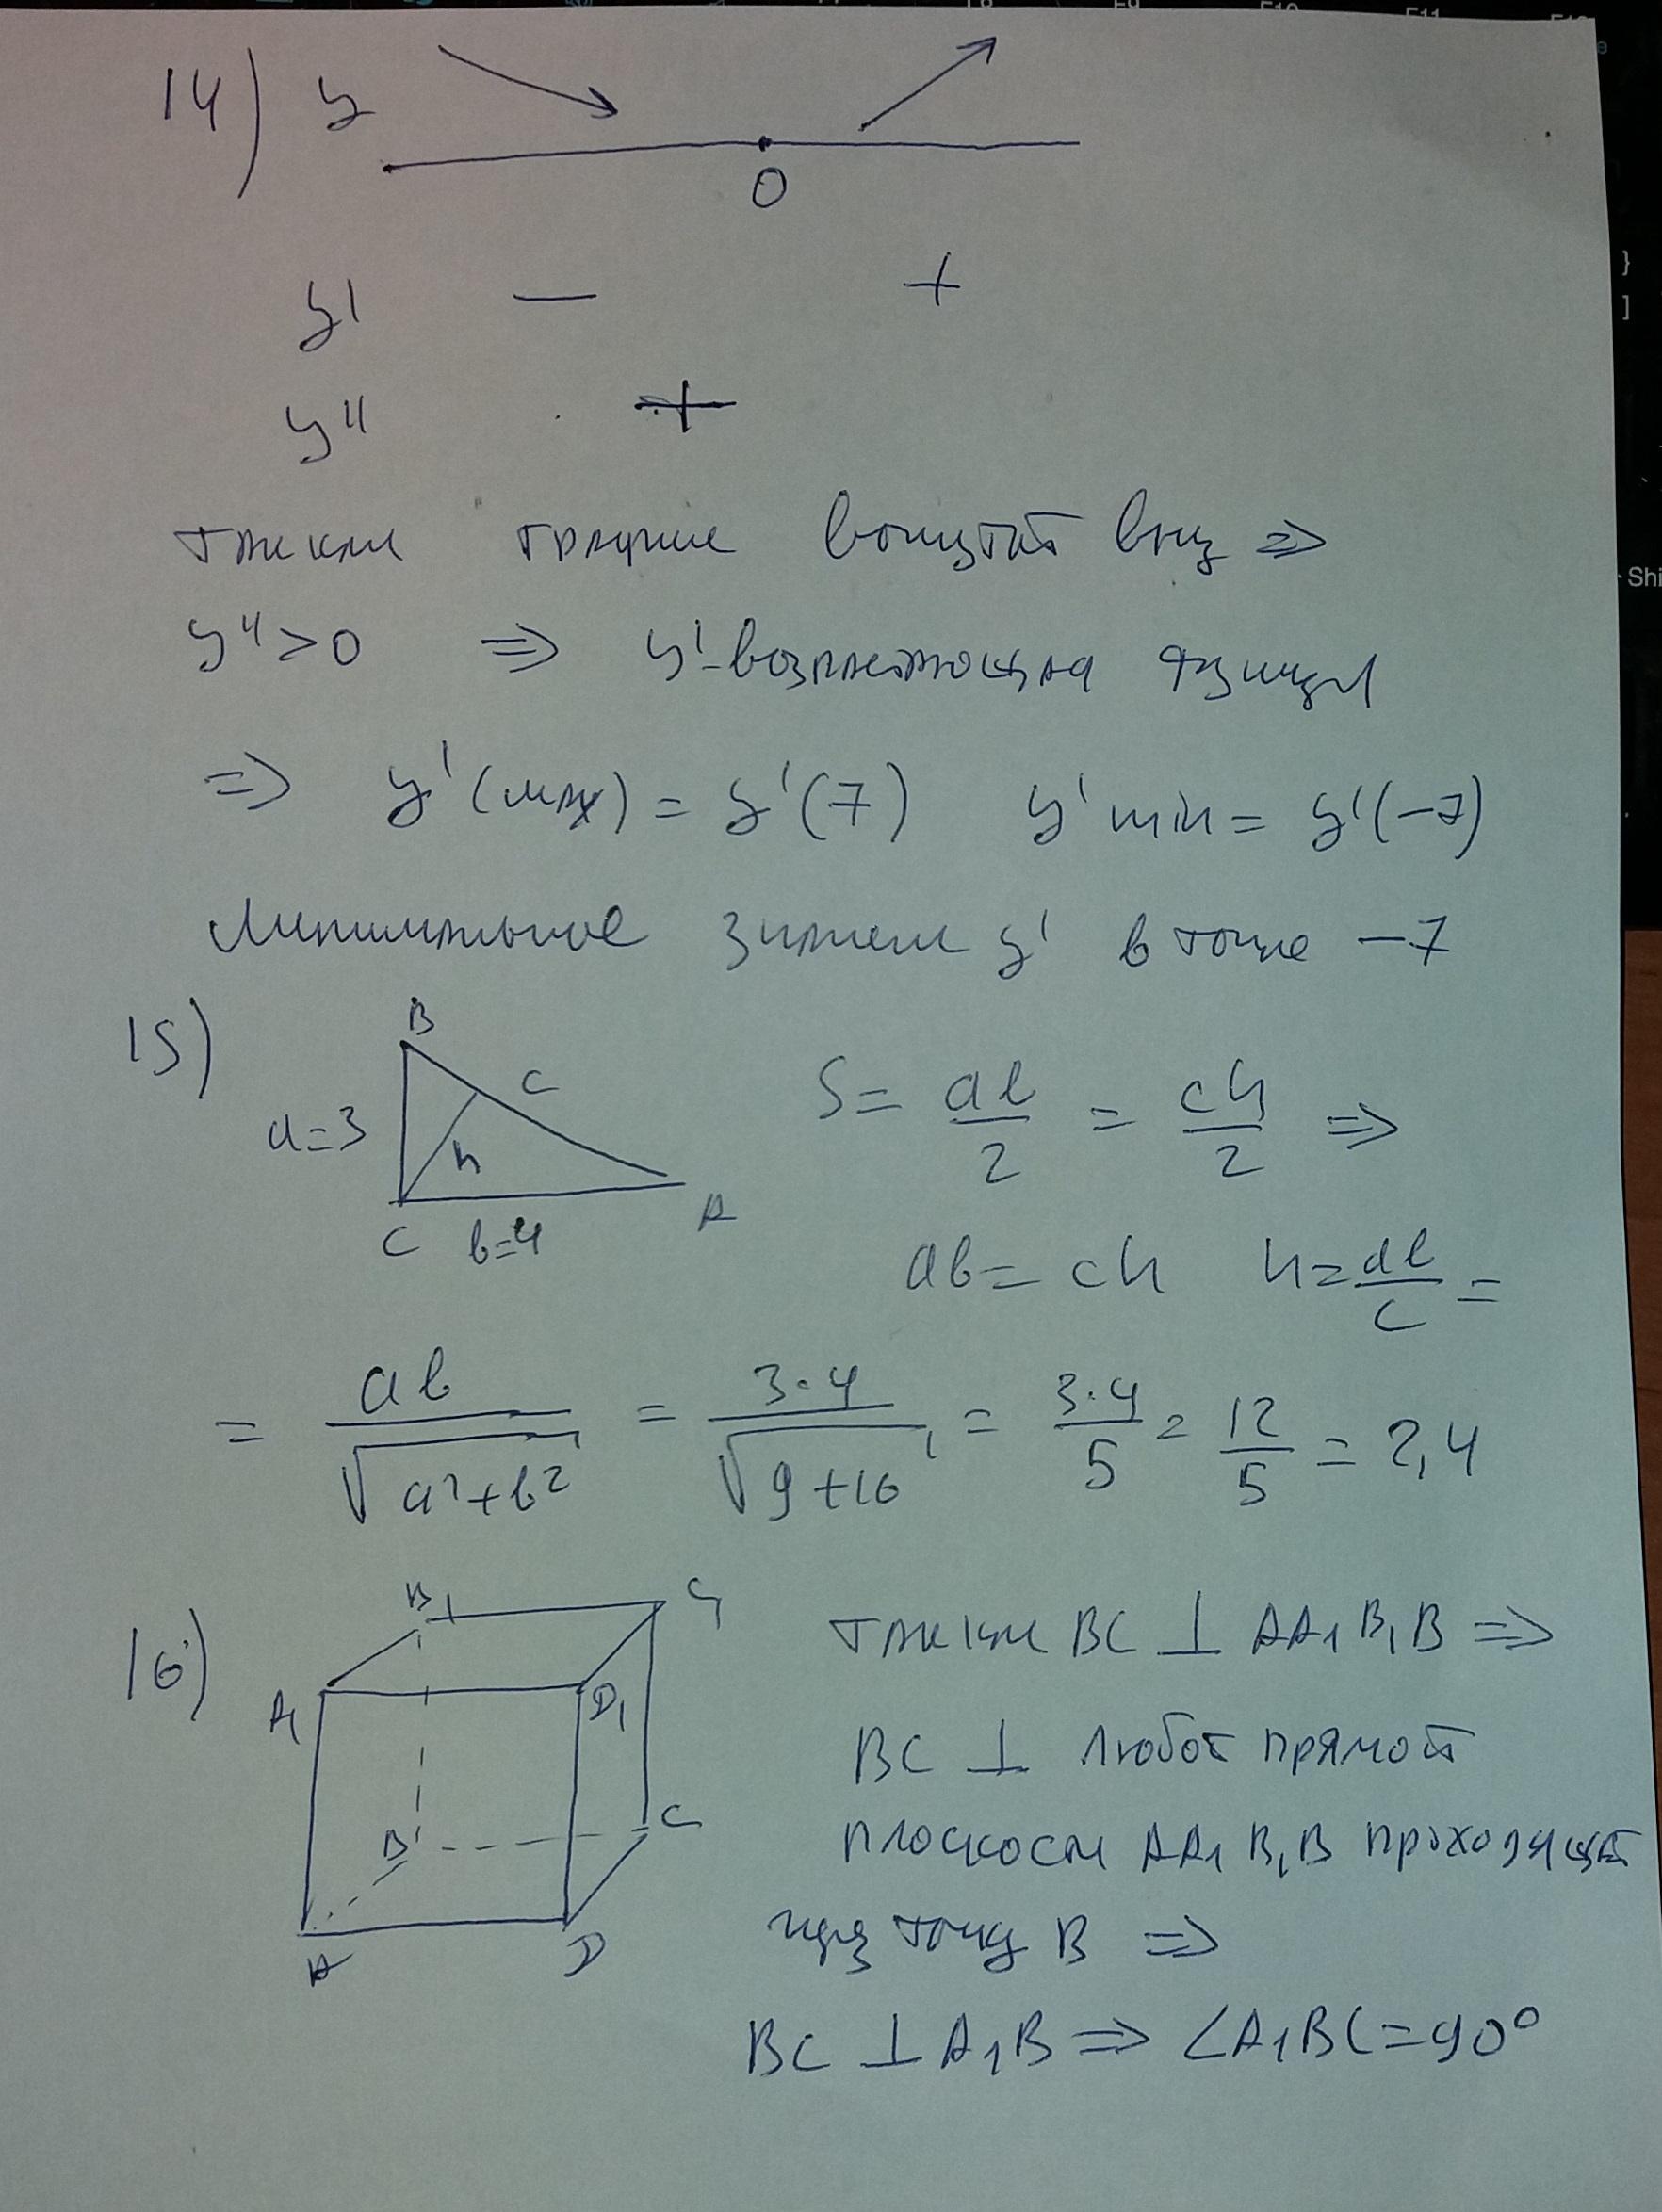 14) y
0
y' − +
y'' +
так как график вогнутый вниз ⇒
y'' > 0 ⇒ y' - возрастающая функция
⇒ y'(max) = y'(7) y' min = y'(−7)
Минимальное значение y' в точке −7
15) B
a=3 c h
C b=4 A
S = ab/2 = ch/2 ⇒
ab = ch h = ab/c =
= ab/√(a²+b²) = 3·4/√(9+16) = 3·4/5 = 12/5 = 2,4
16) B1 C1
A1 D1
B C
A D
так как BC ⊥ AA1B1B ⇒
BC ⊥ любой прямой
плоскости AA1B1B проходящей
через точку B ⇒
BC ⊥ A1B ⇒ ∠A1BC = 90°